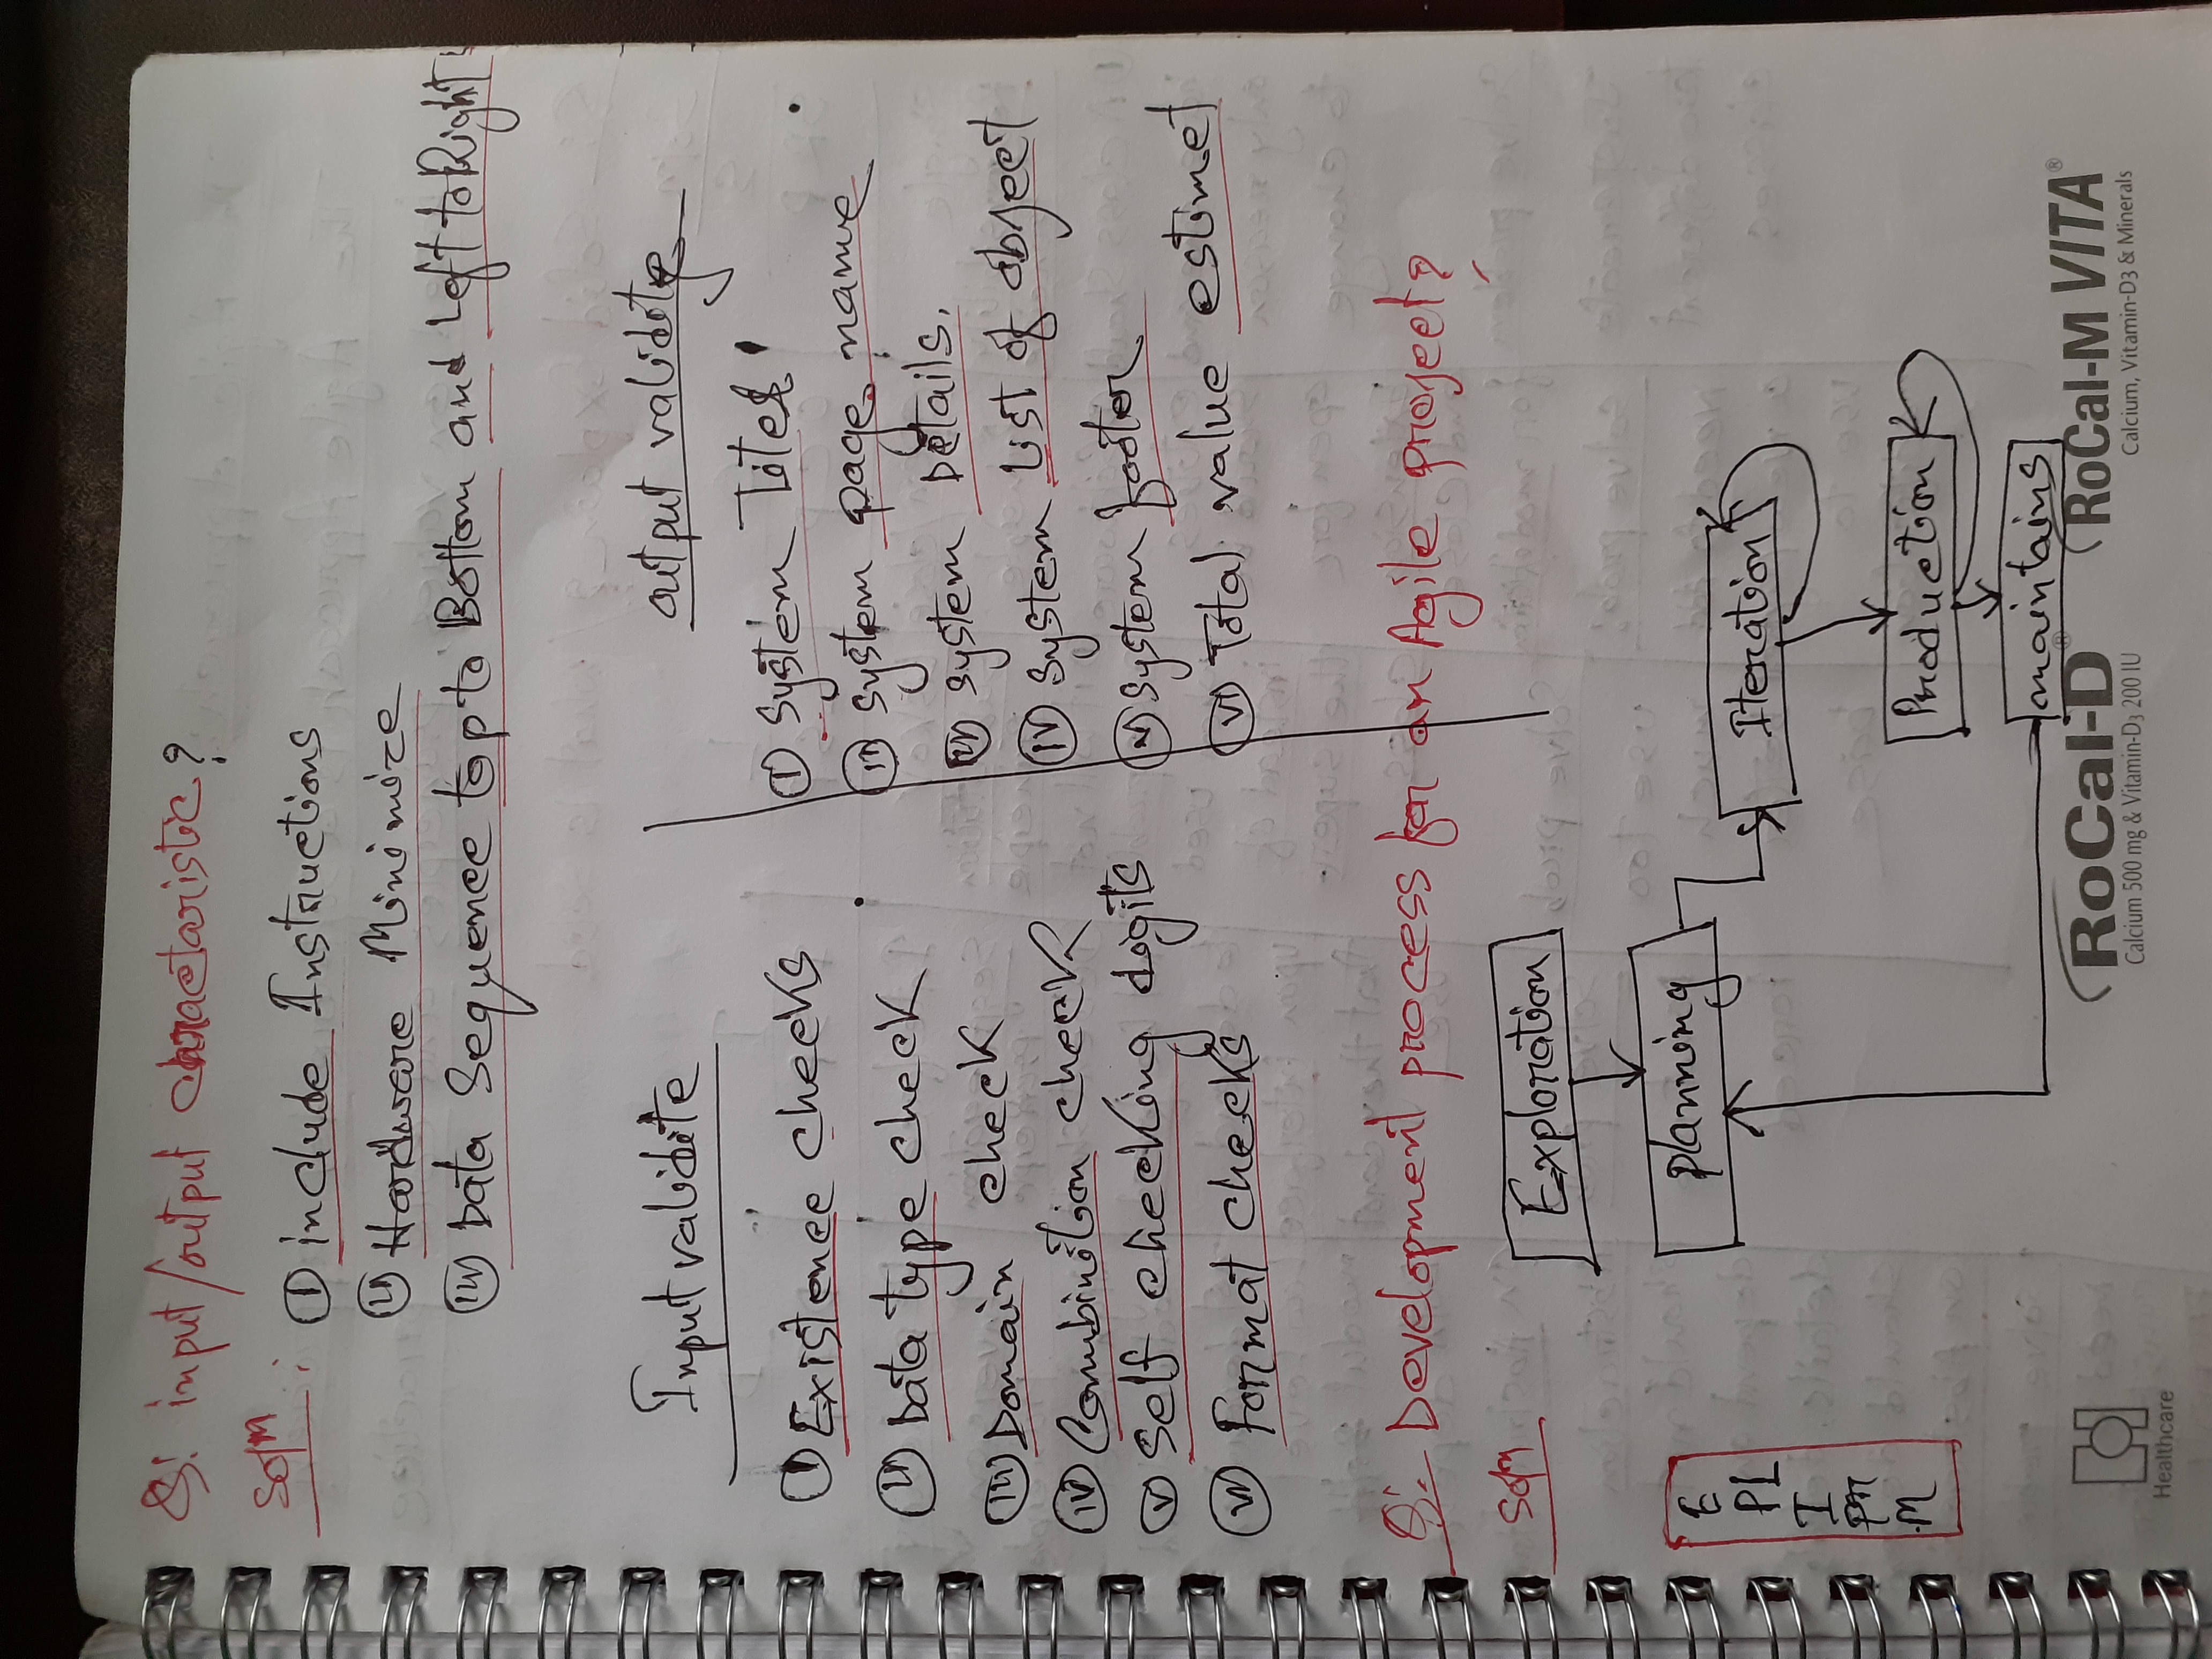 Q: input/output charactaristic?
Soln:
(I) include Instructions
(II) Hardware Minimize
(III) Data Sequence top to Bottom and Left to Right
Input validate
(I) Existence checks
(II) Data type check
(III) Domain check
(IV) Combination check
(V) Self checking digits
(VI) Format checks
output validate
(I) System Titel.
(II) System page name
(III) System Details.
(IV) System List of object
(V) System footer
(VI) Total value estimet
Q:- Development process for an Agile project?
Soln
E
Pl
I
Pr
M
Exploration
planning
Iteration
Production
maintains
Healthcare
RoCal-D®
Calcium 500 mg & Vitamin-D3 200 IU
RoCal-M VITA®
Calcium, Vitamin-D3 & Minerals